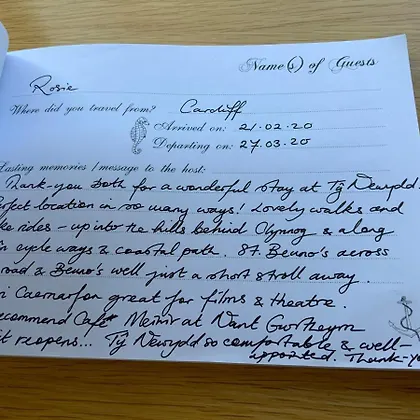 Name(s) of Guests
Rosie
Where did you travel from? Cardiff
Arrived on: 21.02.20
Departing on: 27.03.20
Lasting memories / message to the host:
Thank-you both for a wonderful stay at Tŷ Newydd
rfect location in so many ways! Lovely walks and
ke rides - up into the hills behind Clynnog & along
cycle ways & coastal path. St. Beuno's across
road & Beuno's well just a short stroll away.
Caernarfon great for films & theatre.
ecommend Café Meinir at Nant Gwrtheyrn
it reopens... Tŷ Newydd so comfortable & well-
appointed. Thank-yo